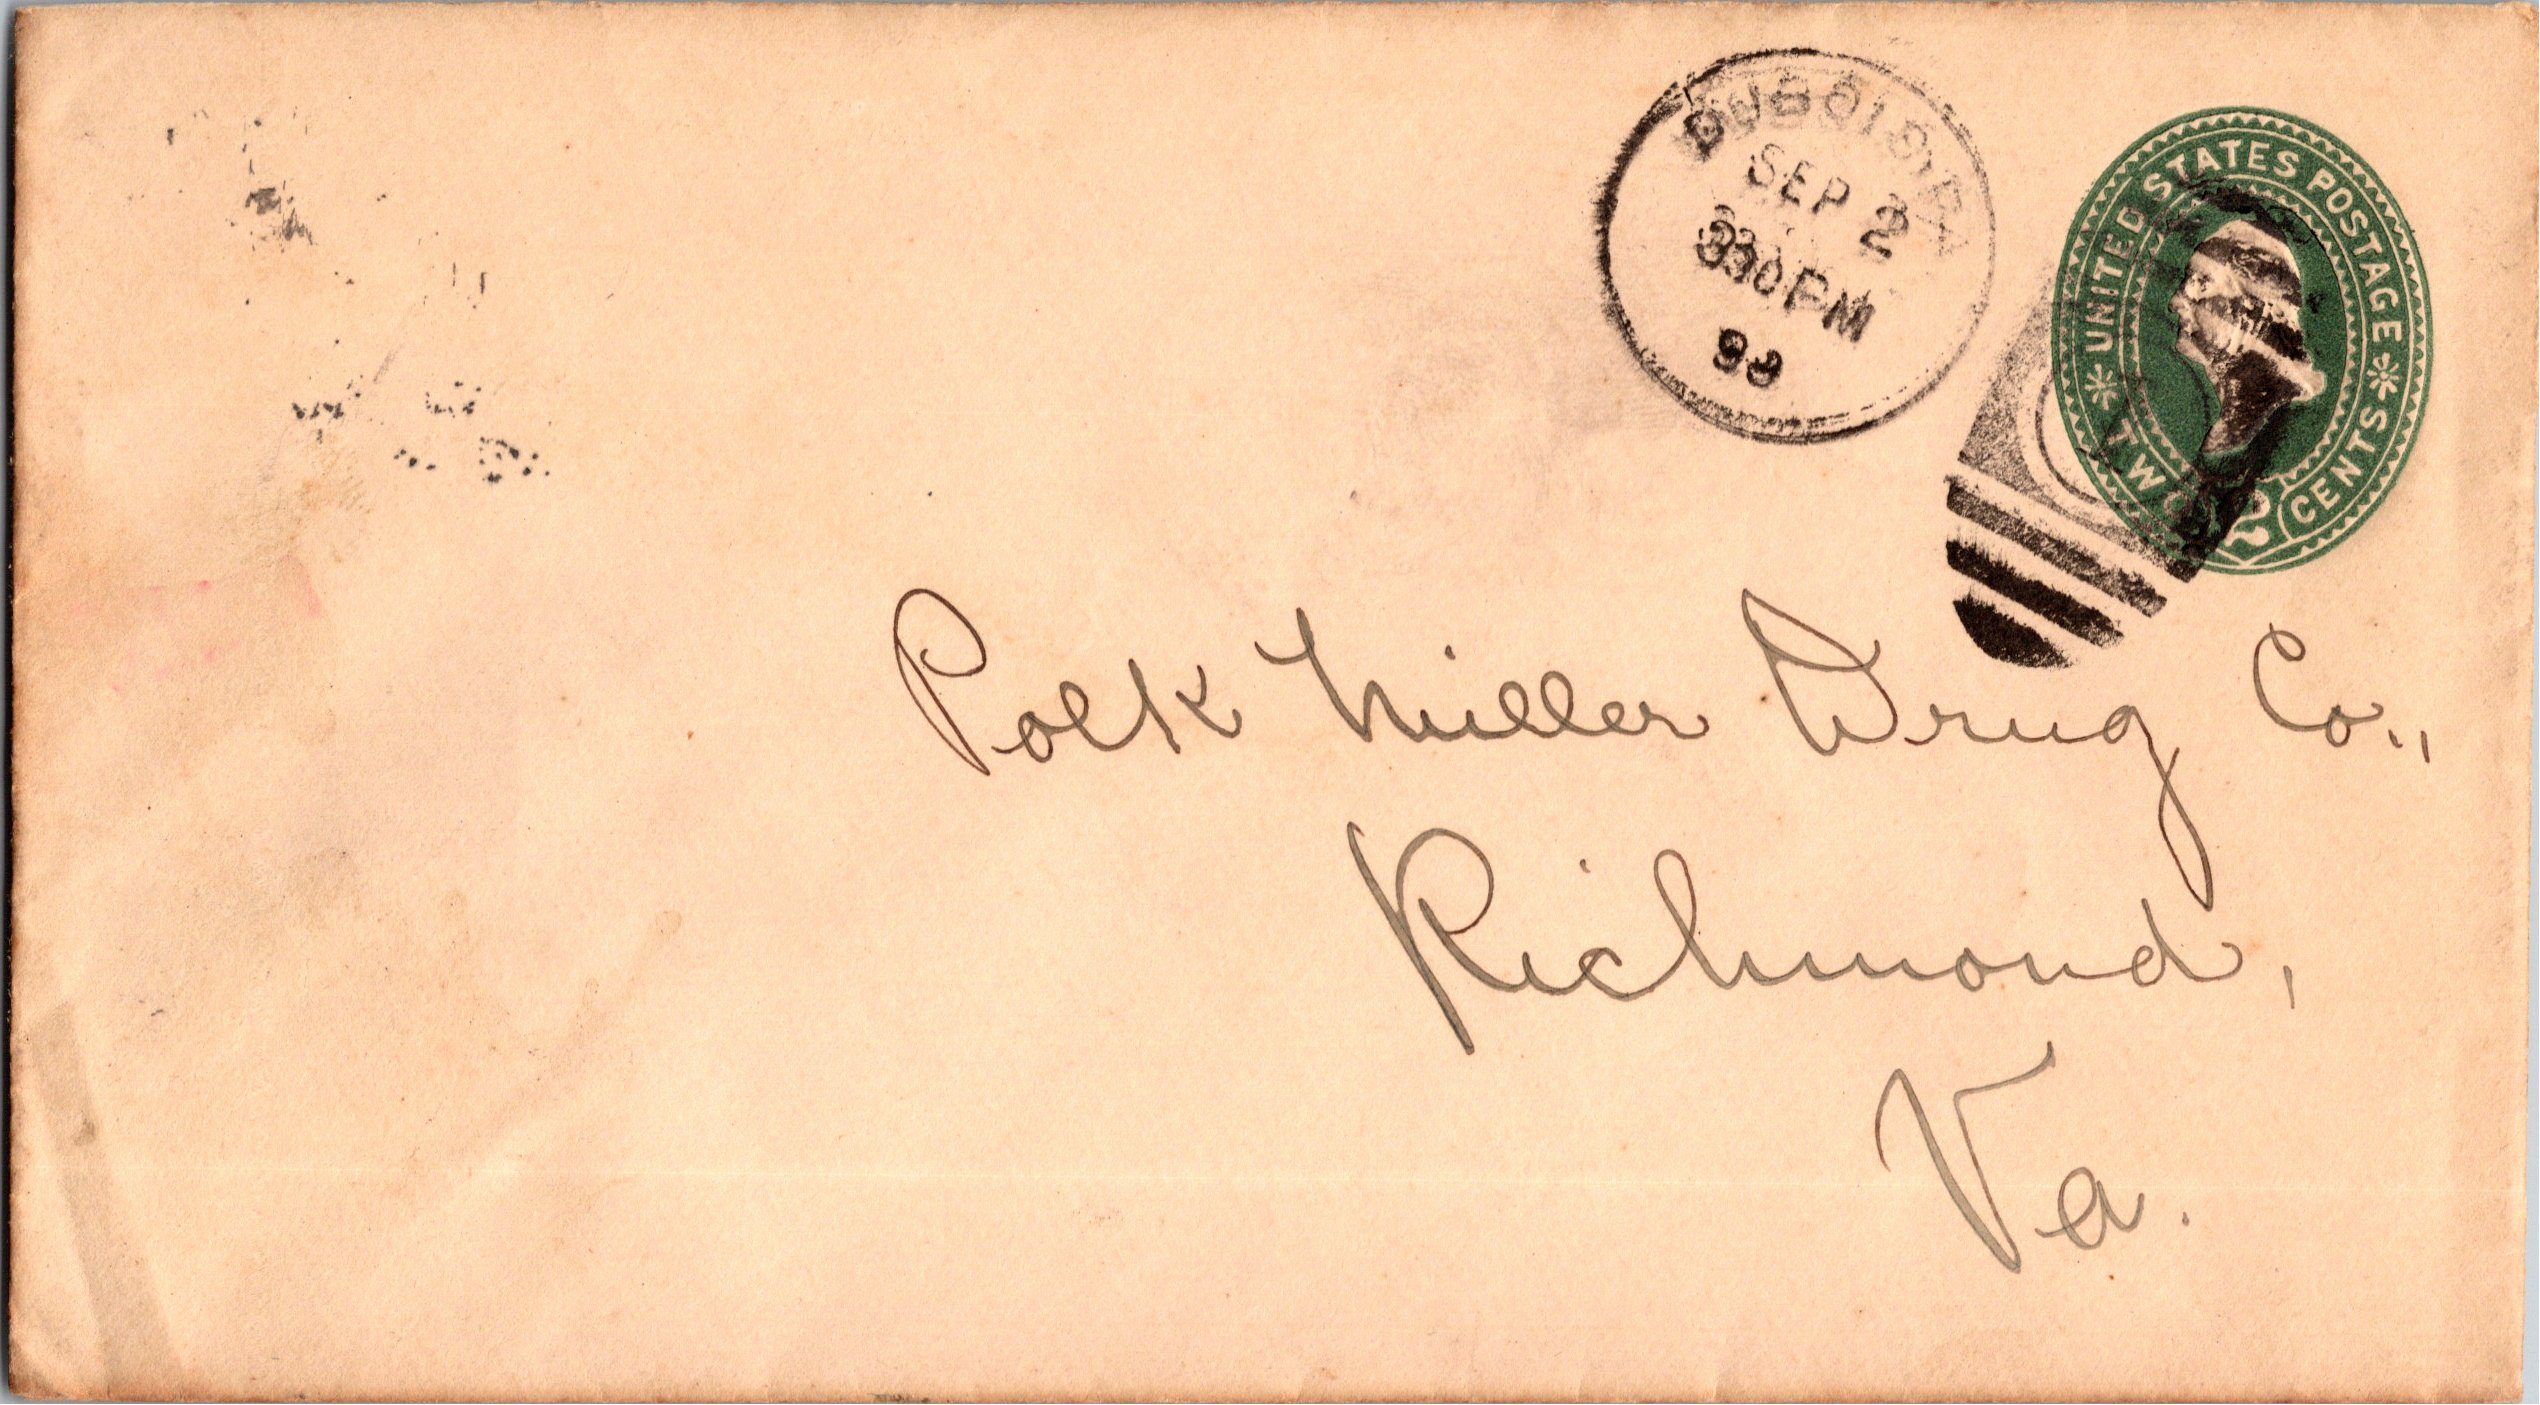 DUBOIS PA
SEP 2
330 PM
UNITED STATES POSTAGE
TWO CENTS
2
Polk Miller Drug Co.,
Richmond,
Va.